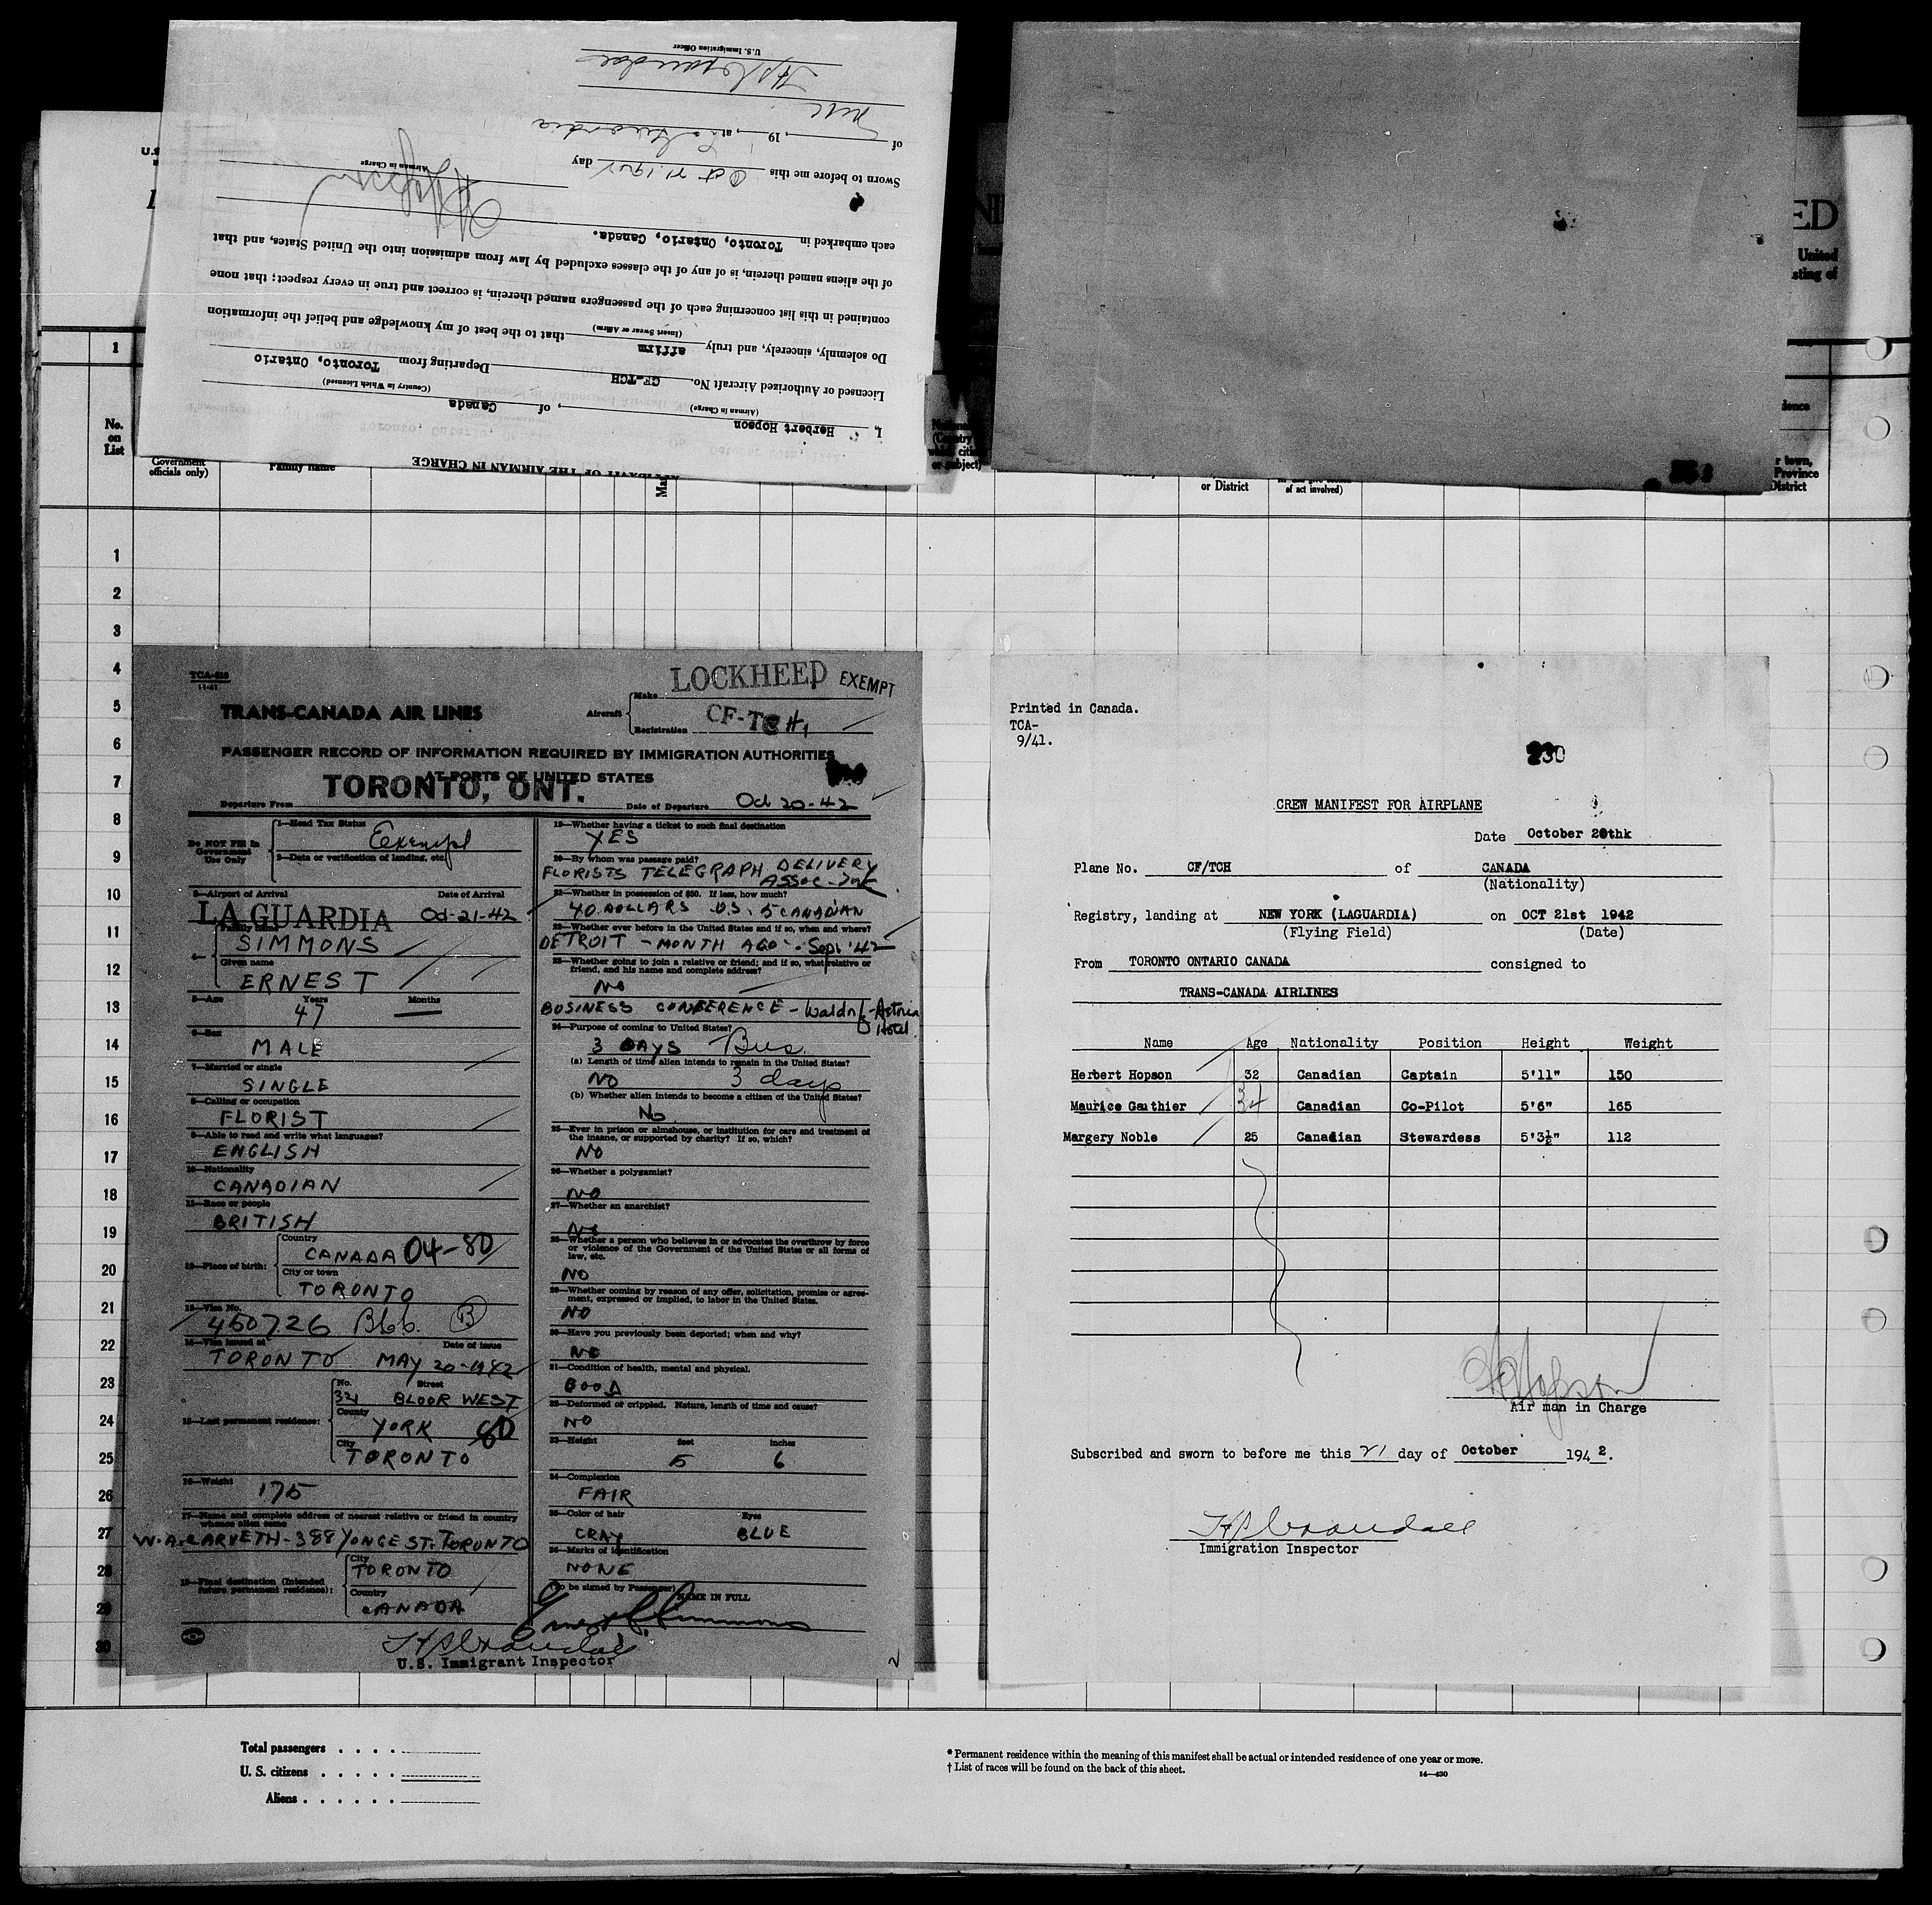 AFFIDAVIT OF THE AIRMAN IN CHARGE
I, Herbert Hopson, of Canada
(Airman in Charge) (Country in Which Licensed)
Licensed or Authorized Aircraft No. CF-TCH Departing from Toronto, Ontario
Do solemnly, sincerely, and truly affirm that to the best of my knowledge and belief the information
(Insert Swear or Affirm)
contained in this list concerning each of the passengers named therein, is correct and true in every respect; that none
of the aliens named therein, is of any of the classes excluded by law from admission into the United States, and that
each embarked in Toronto, Ontario, Canada.
H Hopson
Airman in Charge
Sworn to before me this Oct 21.1942 day
of , 19 , at La Guardia
U.S. Immigration Officer
ED
United
sting of
1
No.
on
List
Government
officials only)
Family name
or subject)
or District
of act involved)
r town,
Province
District
1
2
3
4
5
6
7
8
9
10
11
12
13
14
15
16
17
18
19
20
21
22
23
24
25
26
27
28
29
30
TCA-
11-41
LOCKHEED EXEMPT
Make
TRANS-CANADA AIR LINES
Aircraft
CF-TCH
Registration
PASSENGER RECORD OF INFORMATION REQUIRED BY IMMIGRATION AUTHORITIES
AT PORTS OF UNITED STATES
TORONTO, ONT.
Departure From Date of Departure Oct 20-42
Do NOT Fill In
Government
Use Only
1—Head Tax Status
Exempt
2—Data or verification of landing, etc.
3—Airport of Arrival Date of Arrival
LA GUARDIA Oct-21-42
4— Family name
SIMMONS
Given name
ERNEST
5—Age Years Months
47 —
6—Sex
MALE
7—Married or single
SINGLE
8—Calling or occupation
FLORIST
9—Able to read and write what languages?
ENGLISH
10—Nationality
CANADIAN
11—Race or people
BRITISH
12—Place of birth:
Country
CANADA 04-80
City or town
TORONTO
13—Visa No.
460726 B66. B
14—Visa issued at Date of issue
TORONTO MAY 20-1942
15—Last permanent residence:
No. Street
321 BLOOR WEST
County
YORK 80
City
TORONTO
16—Weight
175
17—Name and complete address of nearest relative or friend in country
whence alien came
W.A. CARVETH-388 YONGE ST. TORONTO
18—Final destination (Intended
future permanent residence):
City
TORONTO
Country
CANADA
19—Whether having a ticket to such final destination
YES
20—By whom was passage paid?
FLORISTS TELEGRAPH DELIVERY
ASSOC-
21—Whether in possession of $50. If less, how much?
40 DOLLARS U.S. 5 CANADIAN
22—Whether ever before in the United States and if so, when and where?
DETROIT - MONTH AGO - Sept '42
23—Whether going to join a relative or friend; and if so, what relative or
friend, and his name and complete address?
NO
BUSINESS CONFERENCE - Waldorf-Astoria
Hotel
24—Purpose of coming to United States?
3 DAYS Bus.
(a) Length of time alien intends to remain in the United States?
NO 3 days
(b) Whether alien intends to become a citizen of the United States?
No
25—Ever in prison or almshouse, or institution for care and treatment of
the insane, or supported by charity? If so, which?
NO
26—Whether a polygamist?
NO
27—Whether an anarchist?
NO
28—Whether a person who believes in or advocates the overthrow by force
or violence of the Government of the United States or all forms of
law, etc.
NO
29—Whether coming by reason of any offer, solicitation, promise or agree-
ment, expressed or implied, to labor in the United States.
NO
30—Have you previously been deported; when and why?
NO
31—Condition of health, mental and physical.
GOOD
32—Deformed or crippled. Nature, length of time and cause?
NO
33—Height feet inches
5 6
34—Complexion
FAIR
35—Color of hair Eyes
GRAY BLUE
36—Marks of identification
NONE
(To be signed by Passenger) NAME IN FULL
U.S. Immigrant Inspector
Printed in Canada.
TCA-
9/41.
230
CREW MANIFEST FOR AIRPLANE
Date October 20thk
Plane No. CF/TCH of CANADA
(Nationality)
Registry, landing at NEW YORK (LAGUARDIA) on OCT 21st 1942
(Flying Field) (Date)
From TORONTO ONTARIO CANADA consigned to
TRANS-CANADA AIRLINES
Name Age Nationality Position Height Weight
Herbert Hopson 32 Canadian Captain 5'11" 150
Maurice Gauthier 34 Canadian Co-Pilot 5'6" 165
Margery Noble 25 Canadian Stewardess 5'3½" 112
H Hopson
Air man in Charge
Subscribed and sworn to before me this 21 day of October 1942.
Immigration Inspector
Total passengers . . . .
U. S. citizens . . . . .
Aliens . . . . . .
* Permanent residence within the meaning of this manifest shall be actual or intended residence of one year or more.
† List of races will be found on the back of this sheet.